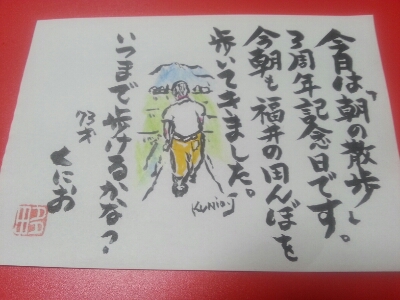 今日は「朝の散歩」
3周年記念日です。
今朝も福井の田んぼを
歩いてきました。
いつまで歩けるかな？
73才
くにお
Kunio.J